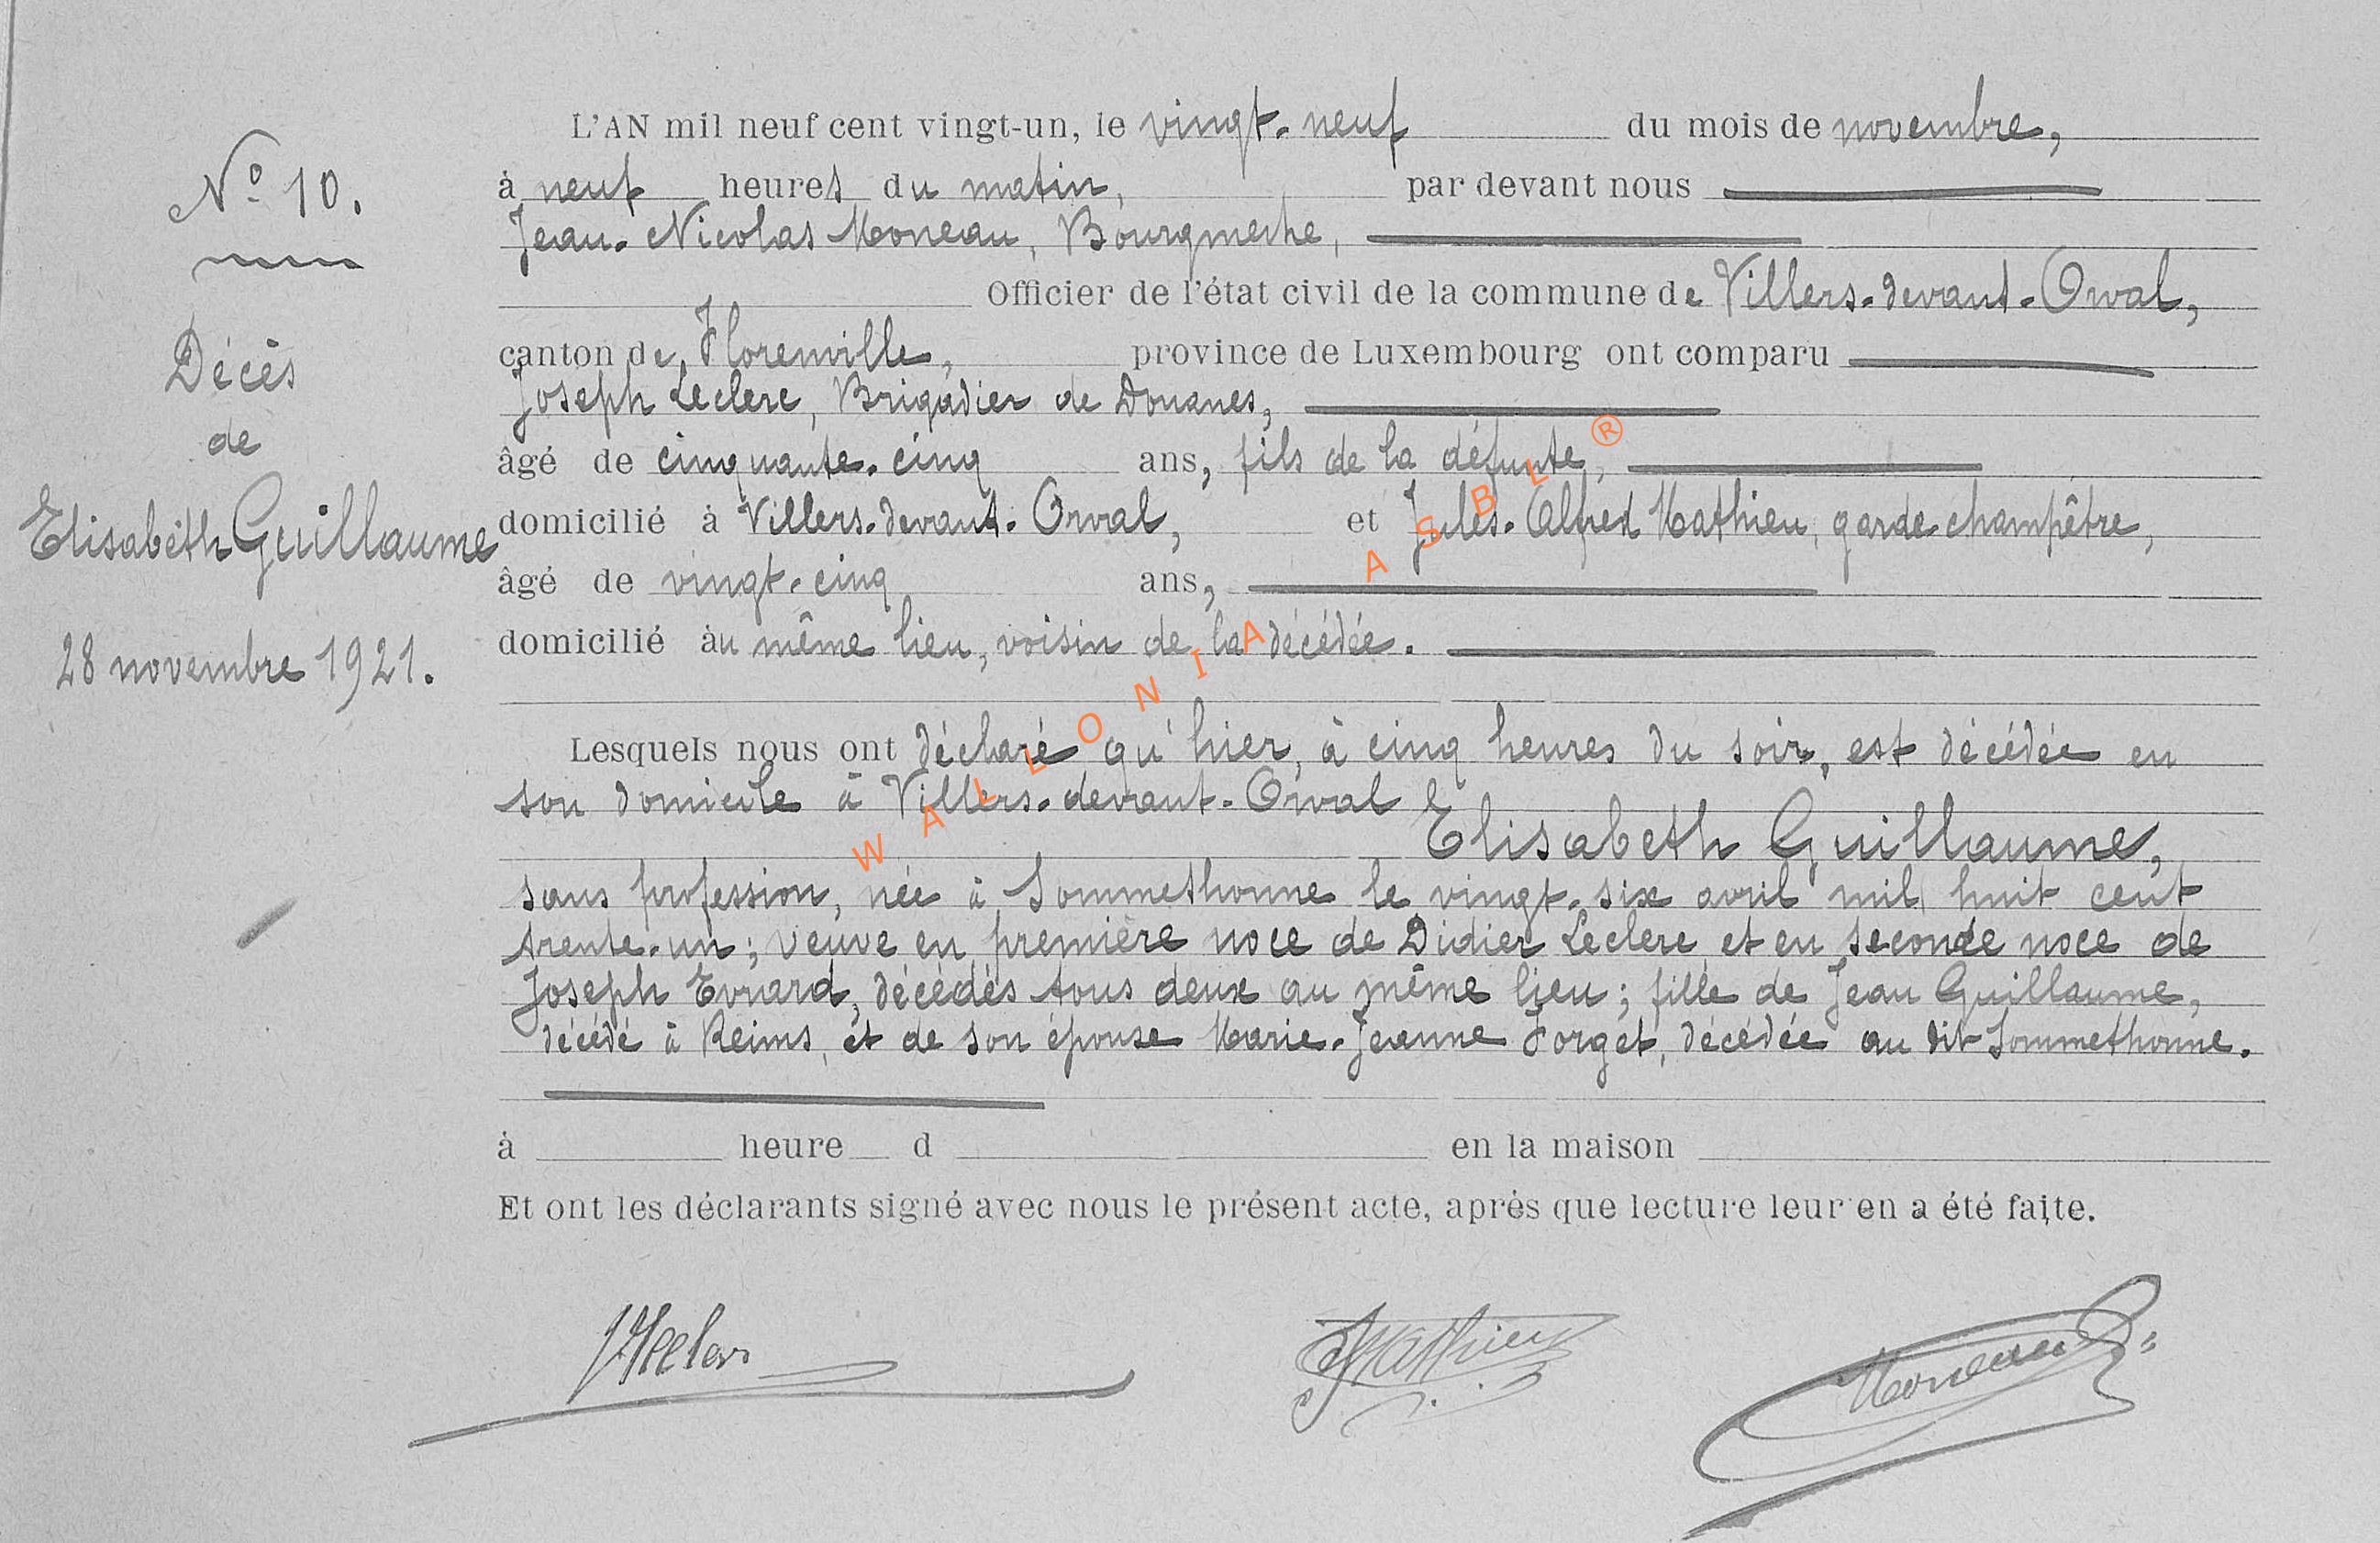 N° 10.
Décès
de
Elisabeth Guillaume
28 novembre 1921.
L'AN mil neuf cent vingt-un, le vingt-neuf du mois de novembre,
à neuf heures du matin, par devant nous
Jean-Nicolas Moneau, Bourgmestre,
Officier de l'état civil de la commune de Villers-devant-Orval,
canton de Florenville, province de Luxembourg ont comparu
Joseph Leclerc, Brigadier de Douanes,
âgé de cinquante-cinq ans, fils de la défunte,
domicilié à Villers-devant-Orval, et Jules-Alfred Mathieu, garde champêtre,
âgé de vingt-cinq ans,
domicilié au même lieu, voisin de la décédée.
Lesquels nous ont déclaré qu'hier, à cinq heures du soir, est décédée en
son domicile à Villers-devant-Orval
Elisabeth Guillaume,
sans profession, née à Sommethonne le vingt-six avril mil huit cent
trente-un; veuve en première noce de Didier Leclerc et en seconde noce de
Joseph Evrard, décédés tous deux au même lieu; fille de Jean Guillaume,
décédé à Reims, et de son épouse Marie-Jeanne Forget, décédée au dit Sommethonne.
à heure d en la maison
Et ont les déclarants signé avec nous le présent acte, après que lecture leur en a été faite.
Mathieu Moneau
WALLONIA ASBL ®